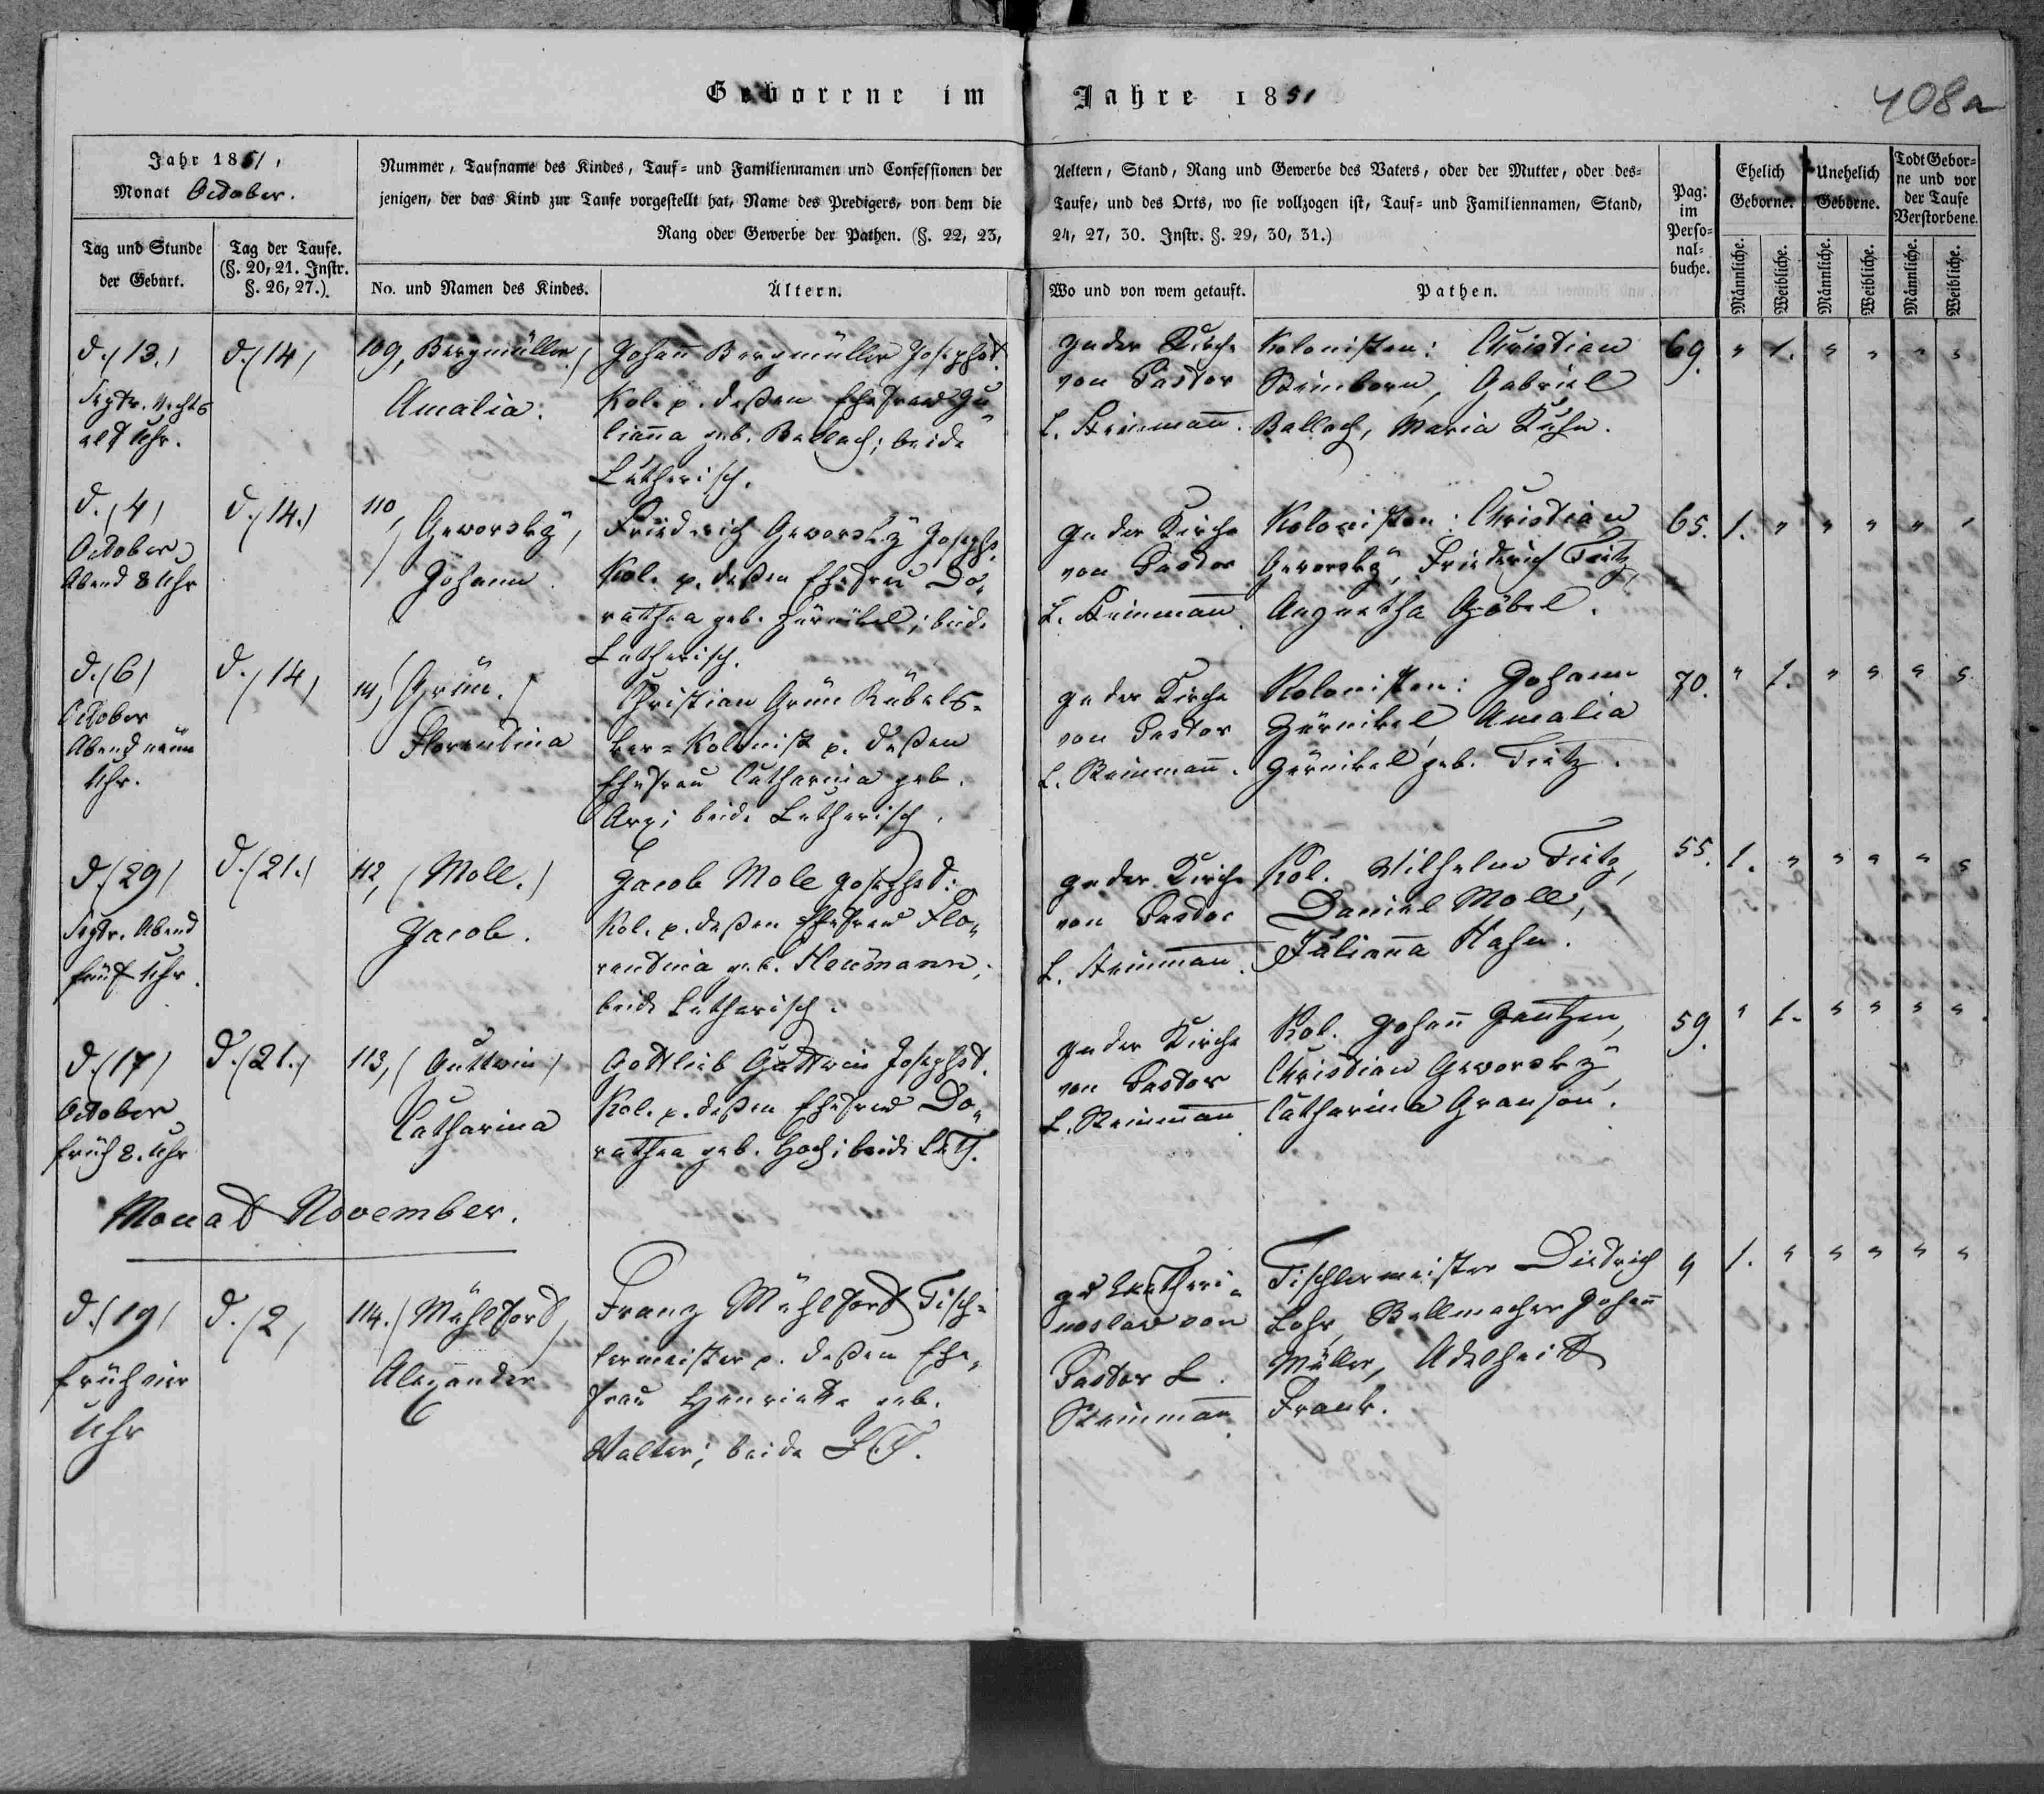 Geborene im Jahre 1851
408a
Jahr 1851,
Monat October.
Nummer, Taufname des Kindes, Tauf- und Familiennamen und Confessionen der
jenigen, der das Kind zur Taufe vorgestellt hat, Name des Predigers, von dem die
Rang oder Gewerbe der Pathen. (§. 22, 23,
Aeltern, Stand, Rang und Gewerbe des Vaters, oder der Mutter, oder des-
Taufe, und des Orts, wo sie vollzogen ist, Tauf- und Familiennamen, Stand,
24, 27, 30. Instr. §. 29, 30, 31.)
Pag:
im
Perso-
nal-
buche.
Ehelich
Geborne.
Unehelich
Geborne.
Todt Gebor-
ne und vor
der Taufe
Verstorbene.
Tag und Stunde
der Geburt.
Tag der Taufe.
(§. 20, 21. Instr.
§. 26, 27.)
No. und Namen des Kindes.
Ältern.
Wo und von wem getauft.
Pathen.
Männliche.
Weibliche.
Männliche.
Weibliche.
Männliche.
Weibliche.
d. 13.
Septr. Nachts
elf Uhr.
d. 14,
109, Bergmüller
Amalia.
Johann Bergmüller Josephst.
Kol. p. deßen Ehefrau Ju-
lianna geb. Ballach; beide
Lutherisch.
In der Kirche
von Pastor
L. Steinmann.
Kolonisten: Christian
Steinborn, Gabriel
Ballach, Maria Kuhn.
69. " 1. " " " "
d. 4
October
Abend 8 Uhr
d. 14.
110, Geworsky,
Johann.
Friedrich Geworsky Josephs.
Kol. p. deßen Ehefrau Do-
rathea geb. Zärnikel; beide
Lutherisch.
In der Kirche
von Pastor
L. Steinmann.
Kolonisten: Christian
Geworsky, Friederich Tietz,
Angnetha Göbel.
65. 1. " " " " "
d. 6
October
Abend neun
Uhr.
d. 14,
111, Grün.
Florentina
Christian Grün Rübels-
ker-Kolonist p. deßen
Ehefrau Catharina geb.
Arz; beide Lutherisch.
In der Kirche
von Pastor
L. Steinmann.
Kolonisten: Johann
Zärnikel, Amalia
Zärnikel geb. Tietz.
70. " 1. " " " "
d. 29
Septr. Abend
fünf Uhr.
d. 21.
112, (Moll.)
Jacob.
Jacob Moll Josephst:
Kol. p. deßen Ehefrau Flo-
rentina geb. Hausmann;
beide Lutherisch.
In der Kirche
von Pastor
L. Steinmann.
Kol. Wilhelm Tietz,
Daniel Moll,
Julianna Hahn.
55. 1. " " " " "
d. 17
October
früh 8. Uhr
d. 21.
113, (Guttwin)
Catharina
Gottlieb Guttwin Josephst.
Kol. p. deßen Ehefrau Do-
rathea geb. Hoch; beide Luth.
In der Kirche
von Pastor
L. Steinmann.
Kol. Johann Jantzen,
Christian Geworsky,
Catharina Granson.
59. " 1. " " " "
Monat November.
d. 19
früh vier
Uhr
d. 2,
114. Mühlford,
Alexander
Franz Mühlford Tisch-
lermeister p. deßen Ehe-
frau Henriette geb.
Walter; beide Luth.
zu Katheri-
noslav von
Pastor L.
Steinmann.
Tischlermeister Dietrich
Lohr, Stellmacher Johann
Müller, Adelheid
Frank.
9 1. " " " " "